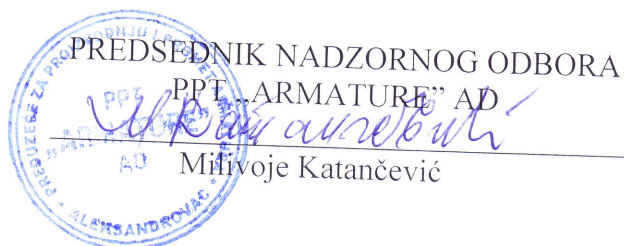 PREDSEDNIK NADZORNOG ODBORA
PPT „ARMATURE” AD
Milivoje Katančević
PREDUZEĆE ZA PROIZVODNJU I
PPT
„ARMATURE”
AD
ALEKSANDROVAC